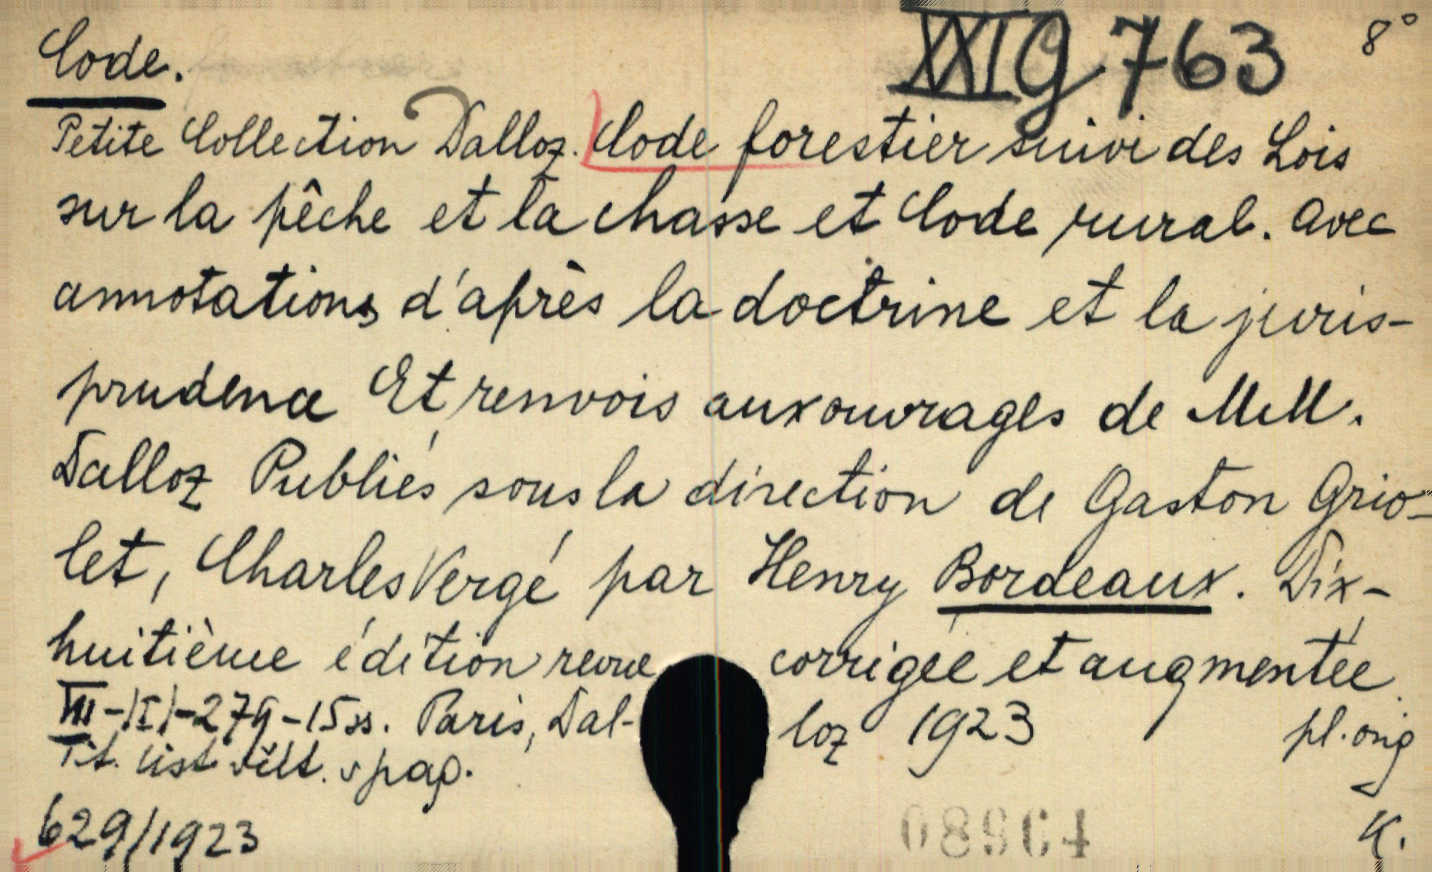 Code.
XXI G 763 8°
Petite Collection Dalloz. Code forestier suivi des Lois
sur la pêche et la chasse et Code rural. Avec
annotations d'après la doctrine et la juris-
prudence Et renvois aux ouvrages de MM.
Dalloz Publiés sous la direction de Gaston Grio-
let, Charles Vergé par Henry Bordeaux. Dix-
huitième édition revue corrigée et augmentée.
III-|I|-279-15 ss. Paris, Dal-loz 1923 pl. orig
Tit. list zvlášt. v pag.
629/1923
K.